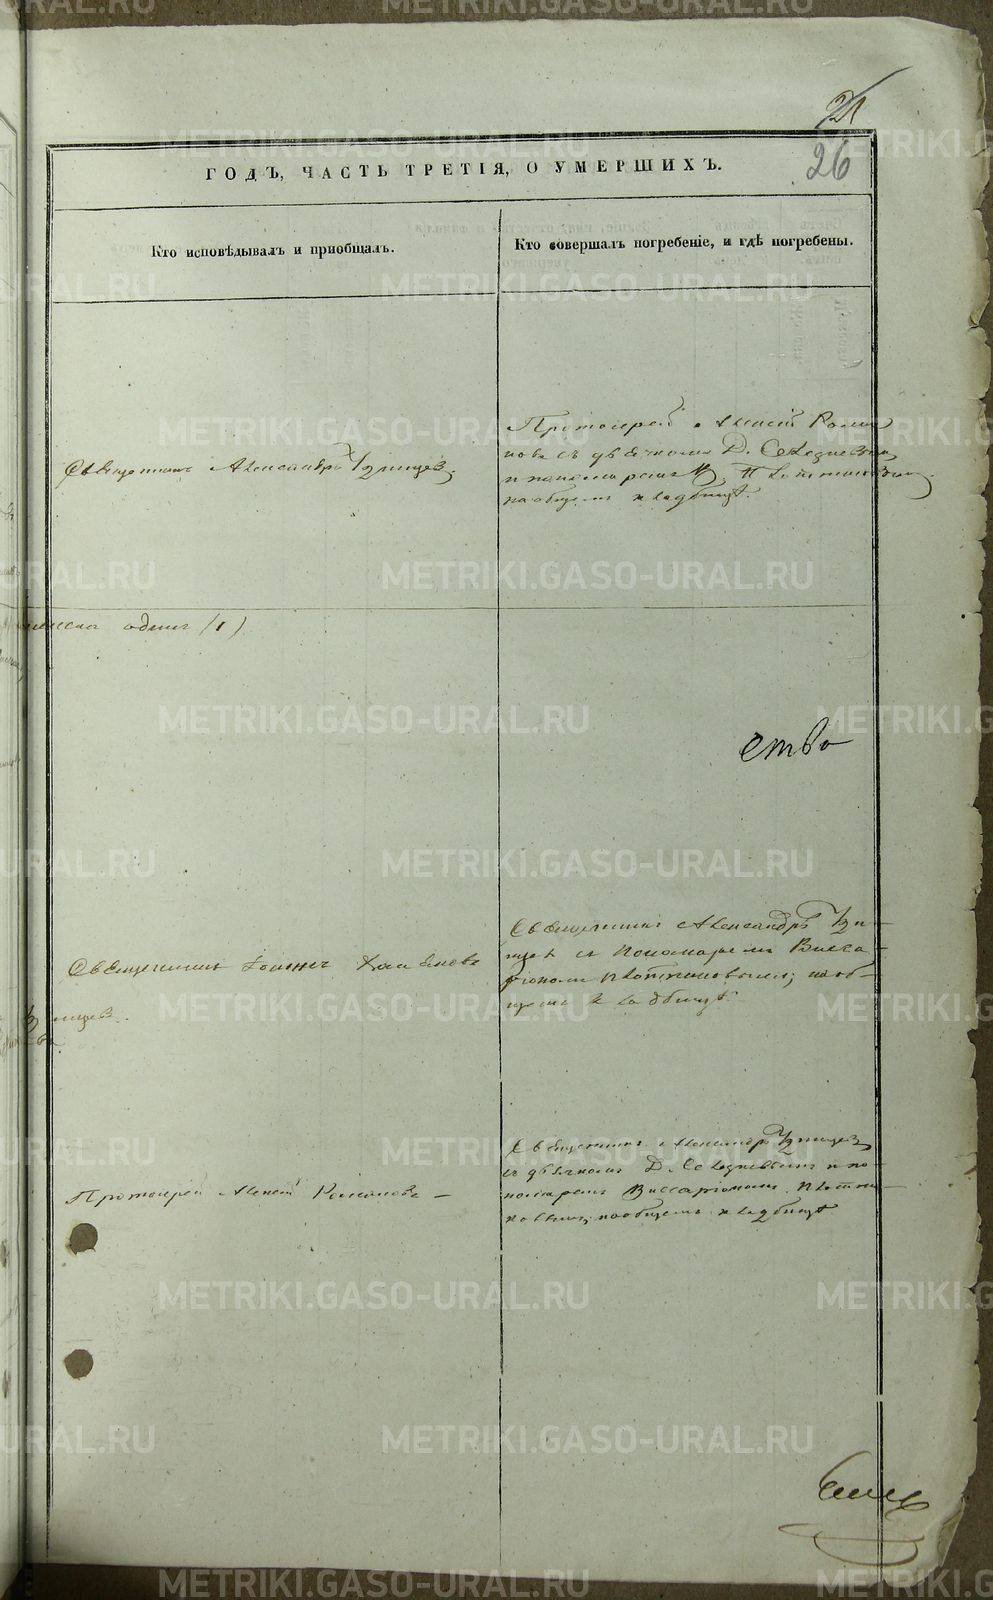 21
26
ГОДЪ, ЧАСТЬ ТРЕТІЯ, О УМЕРШИХЪ.
Кто исповѣдывалъ и пріобщалъ.
Кто совершалъ погребеніе, и гдѣ погребены.
Священникъ Александръ
Протоіерей Алексій Рома-
новъ съ дьячкомъ Д.
и пономаремъ В.
на общемъ кладбищѣ.
одинъ (1)
ство
Священникъ Іоаннъ
Священникъ Александръ
съ Пономаремъ Висса-
ріономъ Плотниковымъ, на об-
щемъ кладбищѣ.
Протоіерей Алексій Романовъ
Священникъ Александръ
съ дьячкомъ Д. и по-
номаремъ Виссаріономъ Плотни-
ковымъ, на общемъ кладбищѣ
METRIKI.GASO-URAL.RU